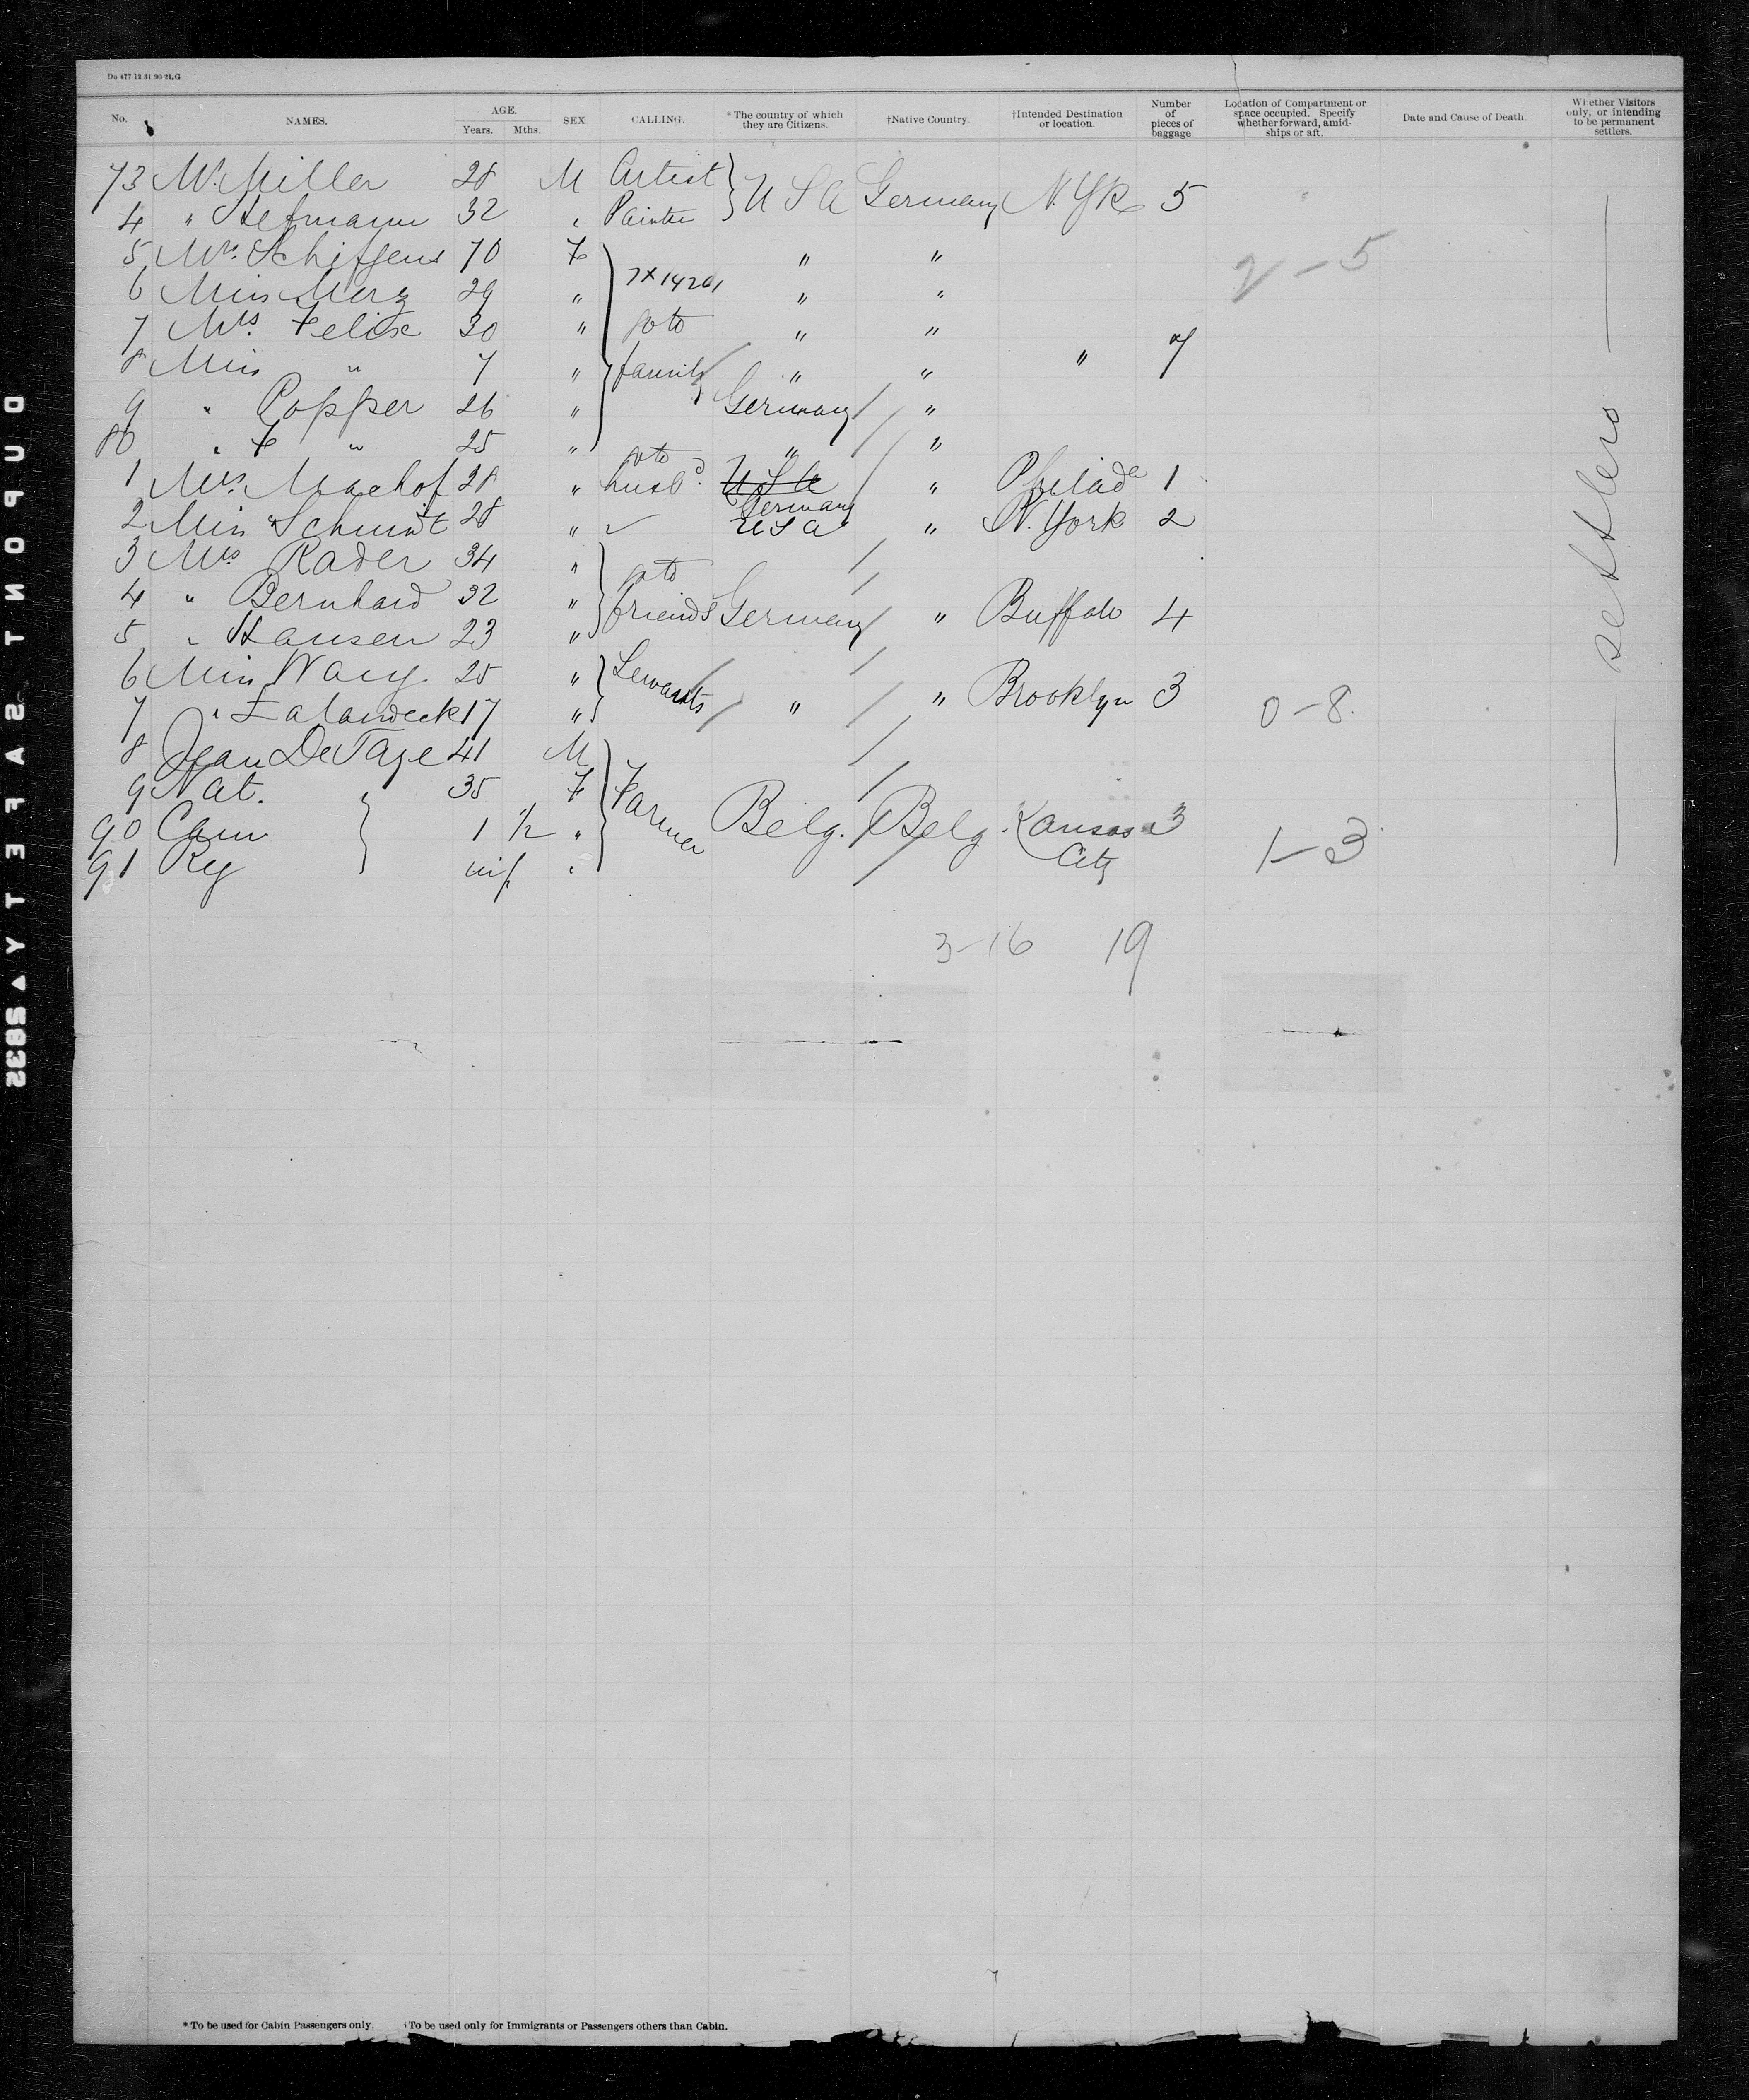 Do 477 12 31 90 2LG
No. NAMES. AGE. Years. Mths. SEX CALLING. *The country of which they are Citizens. †Native Country. †Intended Destination or location. Number of pieces of baggage Location of Compartment or space occupied. Specify whether forward, amidships or aft. Date and Cause of Death. Whether Visitors only, or intending to be permanent settlers.
73 Mr. Miller 28 M Artist } U S A Germany N. Yk 5
4 " Hefmann 32 " Painter
5 Mrs. Schiffens 70 F " " 2-5
6 Miss Merz 29 " 7X14201 " "
7 Mrs. Felix 30 " go to " "
8 Miss " 7 " family " " " 7
9 " Popper 26 " Germany / "
80 " F " 25 " " / "
1 Mrs. Machof 28 " go to husbd. U S A Germany / " Philada 1
2 Miss Schmidt 28 " ✓ U S A " N. York 2
3 Mrs Rader 34 " go to /
4 " Bernhard 32 " friends Germany / " Buffalo 4
5 " Hansen 23 "
6 Miss Wary 25 " Servants /
7 " Zalandeck 17 " " / " Brooklyn 3 0-8.
8 Jean DeTaye 41 M /
9 Nat. 35 F Farmer /
90 Cam } 1 1/2 " Belg. / Belg. Kansas City 3 1-3
91 Ry inf. "
3-16 19
settlers
*To be used for Cabin Passengers only. †To be used only for Immigrants or Passengers others than Cabin.
DUPONT SAFETY ▲ S832